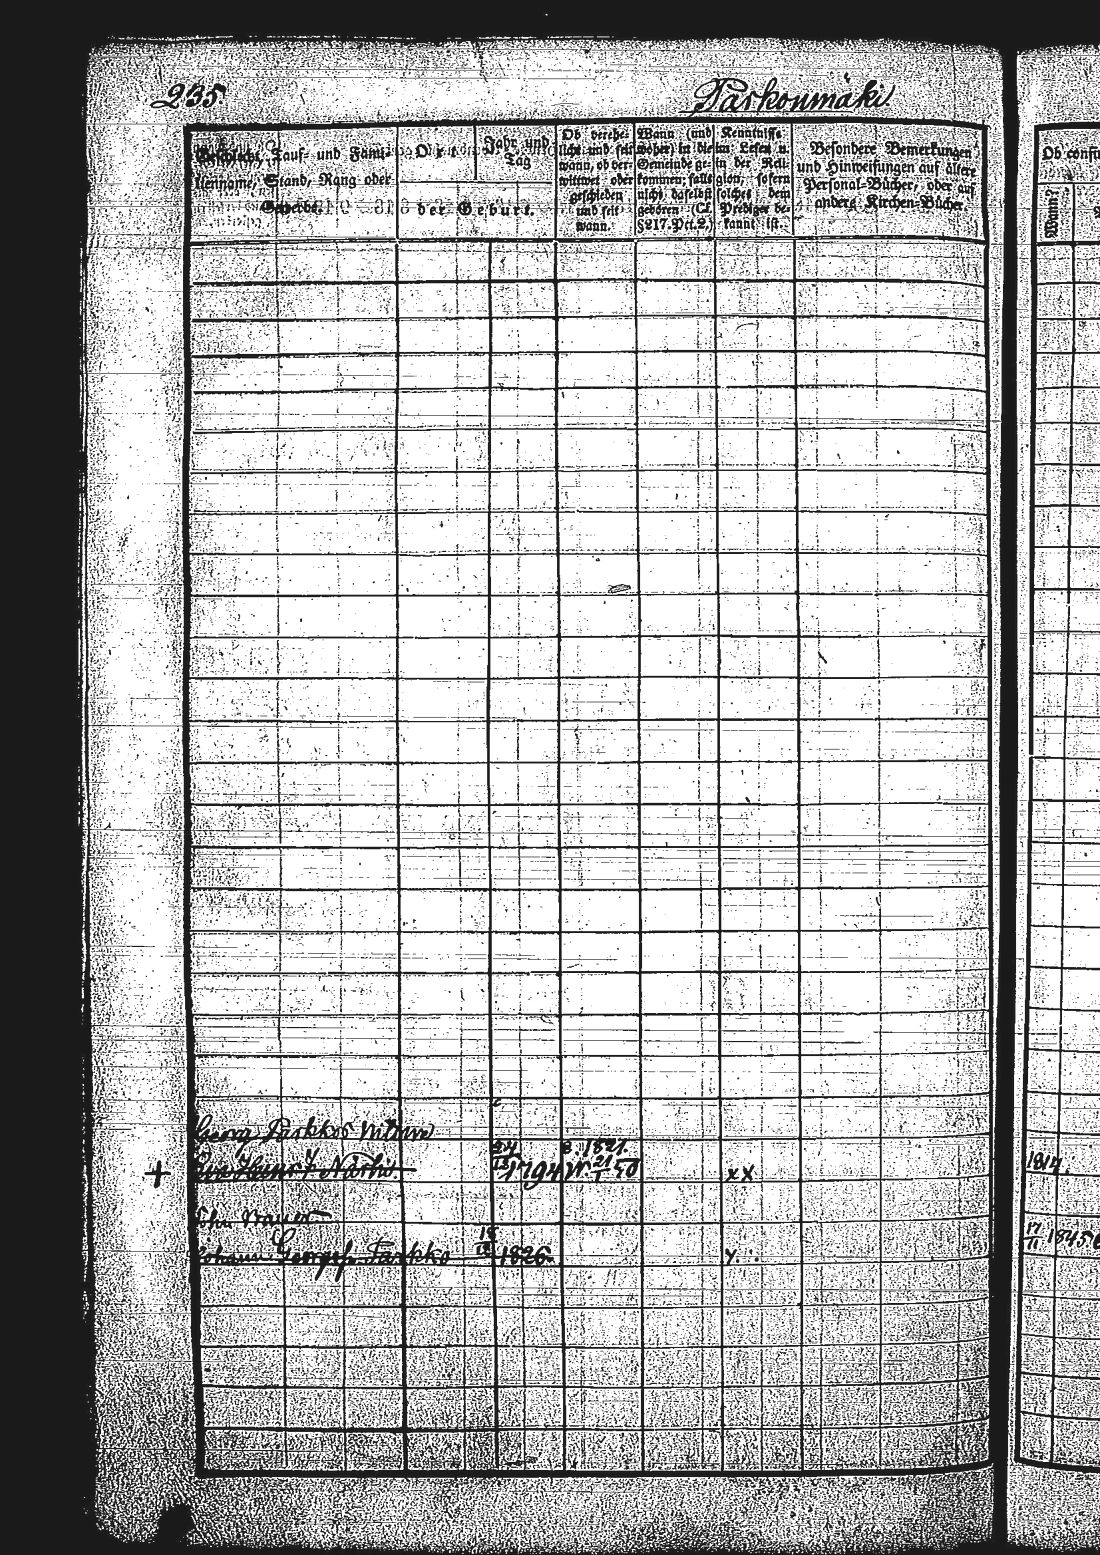 235.
Parkoumäki
Geschlecht, Tauf- und Fami-
lienname, Stand, Rang oder
Gewerbe.
Ort
Jahr und
Tag
der Geburt.
Ob verehe-
licht und seit
wann, ob ver-
wittwet oder
geschieden
und seit
wann.
Wann (und
woher) in die
Gemeinde ge-
kommen; falls
nicht daselbst
geboren (Cf.
§217. Pct. 2.)
Kenntnisse
im Lesen u.
in der Reli-
gion, sofern
solches dem
Prediger be-
kannt ist.
Besondere Bemerkungen
und Hinweisungen auf ältere
Personal-Bücher, oder auf
andere Kirchen-Bücher.
Ob confir
Wann?
Georg Parkko's
+ Eva Heinr. T. 24 1794 e. 1821. W. 21/1 50 xx
1814.
Sohn
Johann Georgs. Parkko 18 1826. y.
17/11 1845